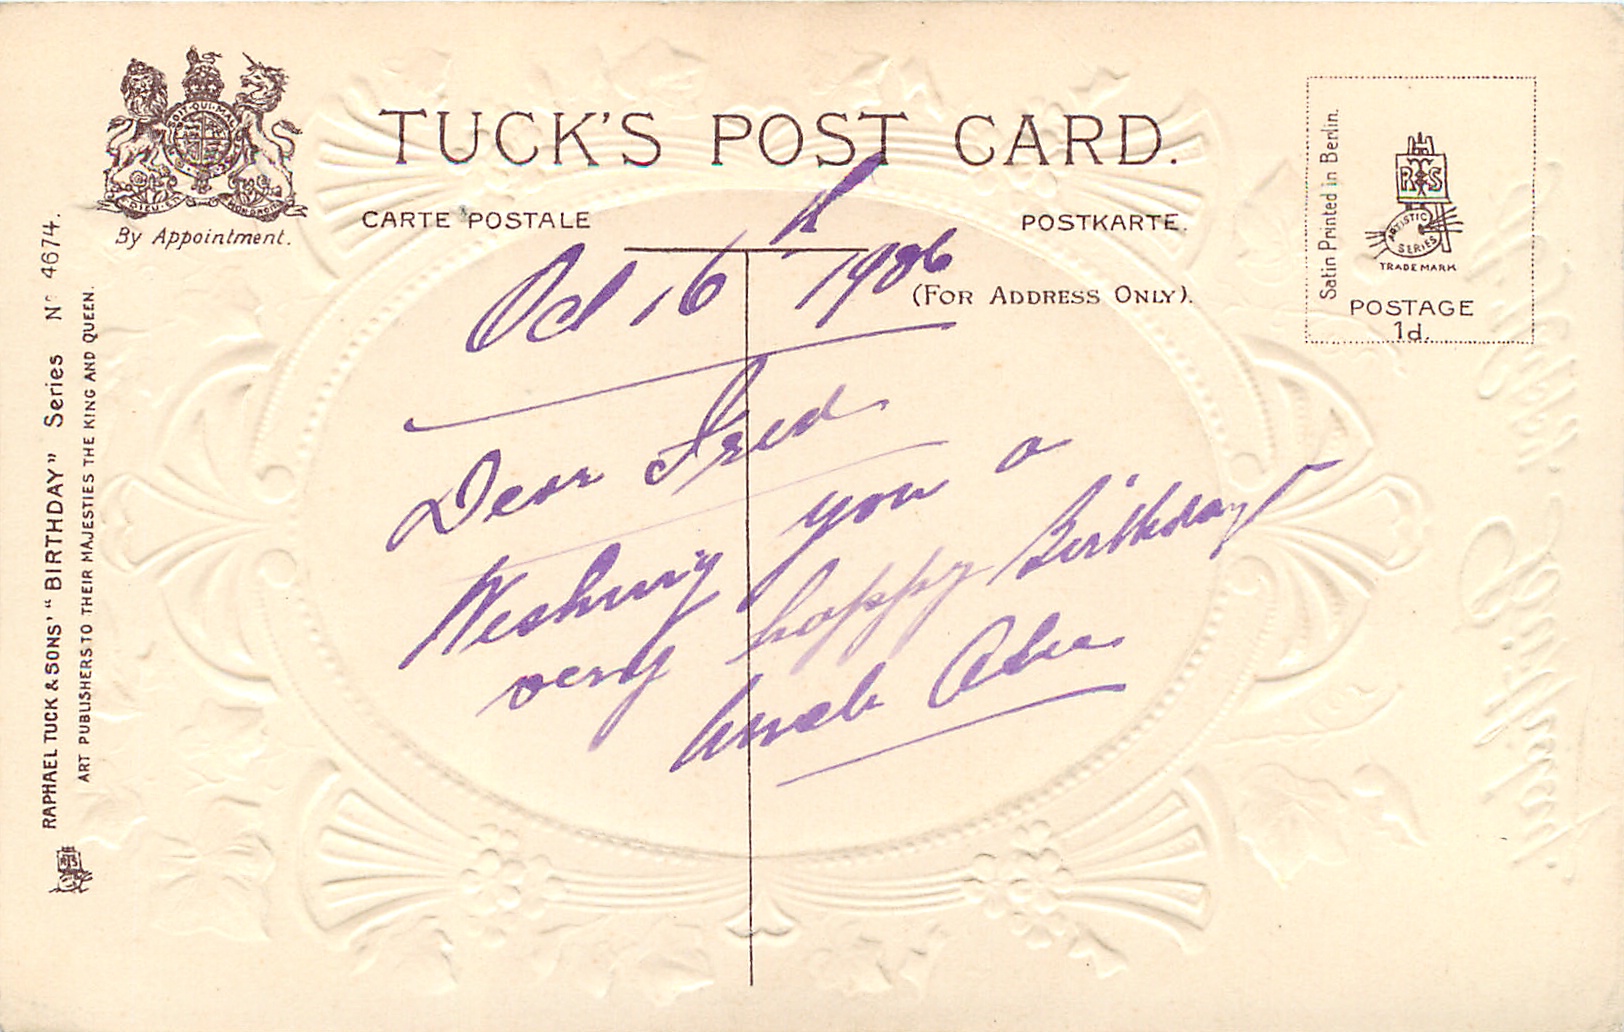 TUCK'S POST CARD.
By Appointment.
CARTE POSTALE
POSTKARTE.
(FOR ADDRESS ONLY).
Satin Printed in Berlin.
ARTISTIC
SERIES
TRADE MARK
POSTAGE
1d.
RAPHAEL TUCK & SONS' "BIRTHDAY" Series No 4674.
ART PUBLISHERS TO THEIR MAJESTIES THE KING AND QUEEN.
Oct 16th 1906
Dear Fred
Wishing you a
very happy Birthday
Uncle Abe